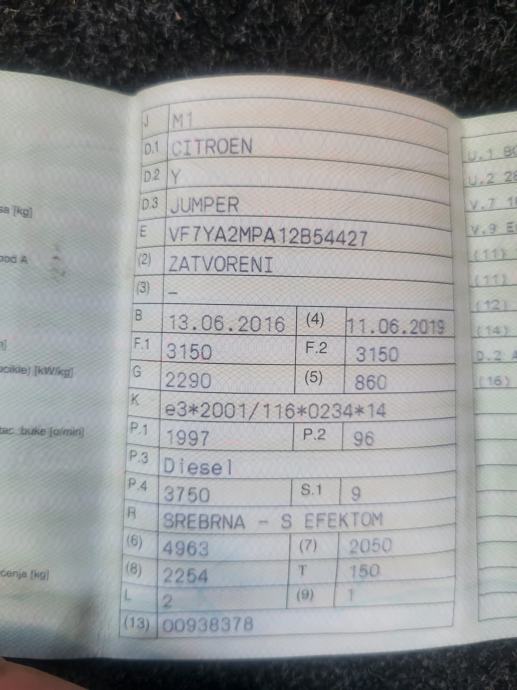 sa [kg]
ood A
ocikle) [kW/kg]
tac. buke [o/min]
cenja [kg]
J M1
D.1 CITROEN
D.2 Y
D.3 JUMPER
E VF7YA2MPA12B54427
(2) ZATVORENI
(3) –
B 13.06.2016 (4) 11.06.2019
F.1 3150 F.2 3150
G 2290 (5) 860
K e3*2001/116*0234*14
P.1 1997 P.2 96
P.3 Diesel
P.4 3750 S.1 9
R SREBRNA - S EFEKTOM
(6) 4963 (7) 2050
(8) 2254 T 150
L 2 (9) 1
(13) 00938378
U.1
U.2 28
V.7
V.9
(11)
(11)
(12)
(14)
D.2
(16)